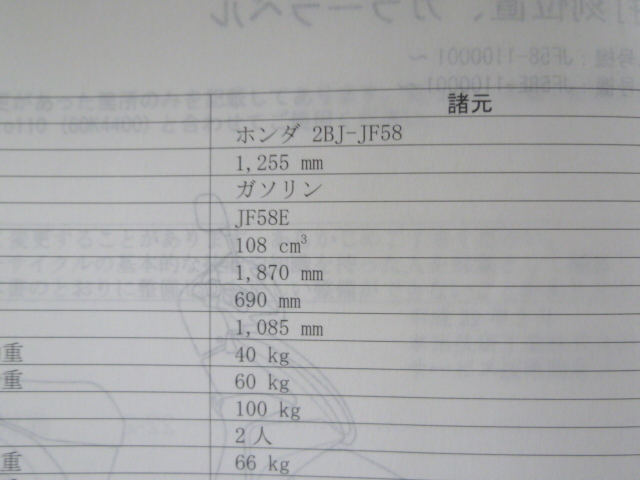 諸元
ホンダ 2BJ-JF58
1,255 mm
ガソリン
JF58E
108 cm³
1,870 mm
690 mm
1,085 mm
重
40 kg
重
60 kg
100 kg
2人
重
66 kg